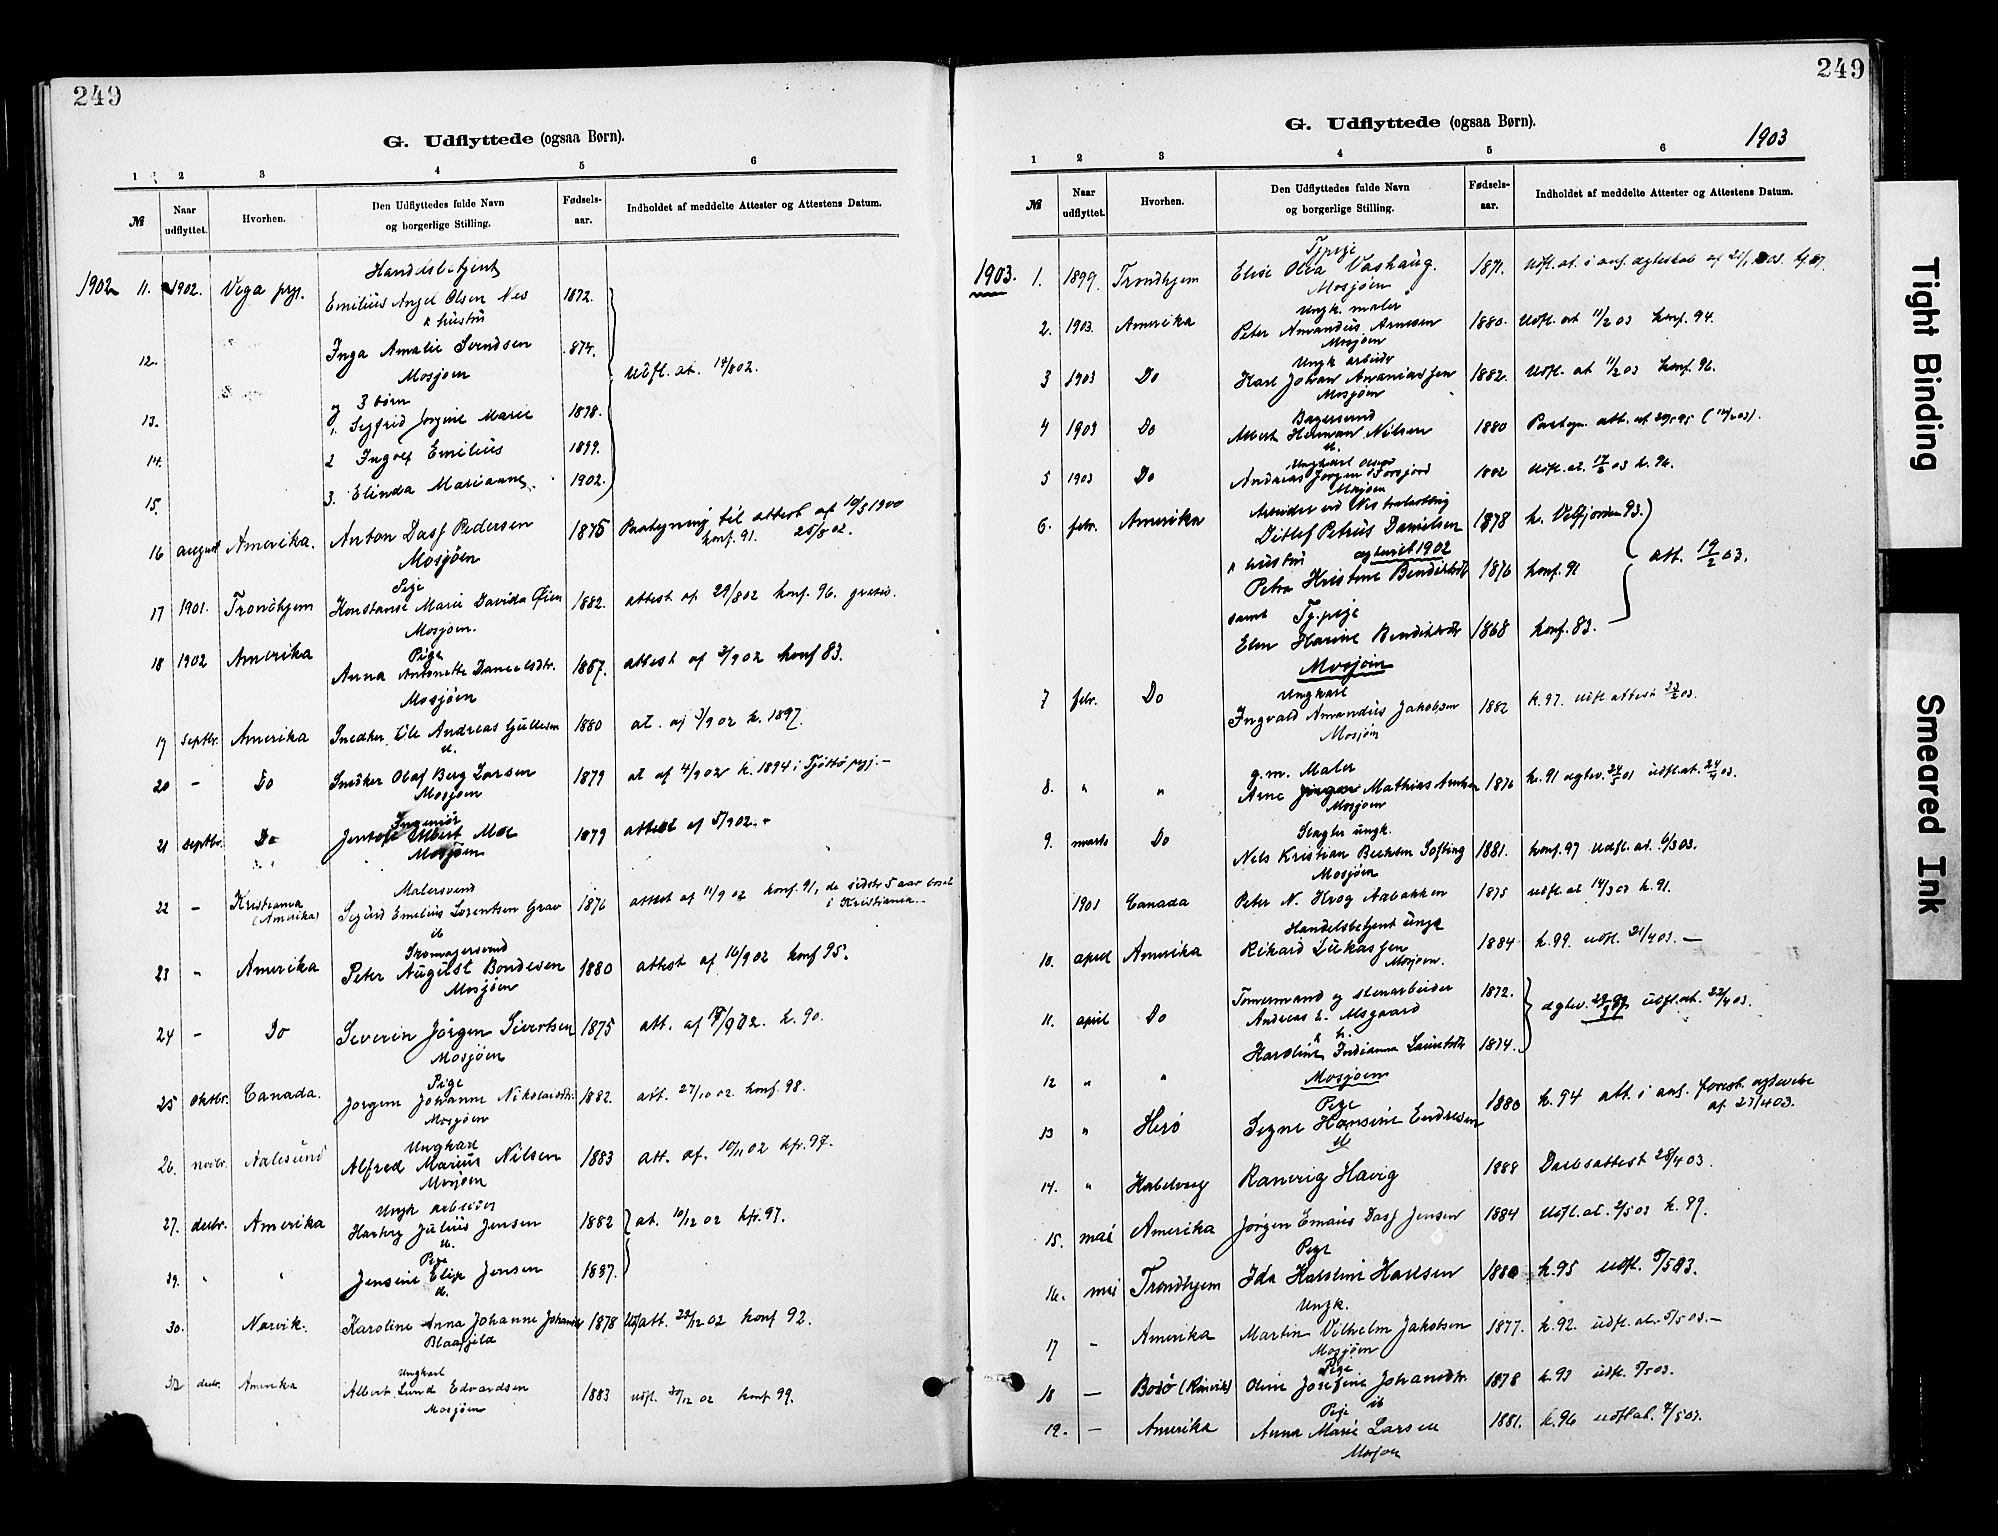 249
G. Udflyttede (ogsaa Børn).
1 2 3 4 5 6
№ Naar udflyttet. Hvorhen. Den Udflyttedes fulde Navn og borgerlige Stilling. Fødsels-aar. Indholdet af meddelte Attester og Attestens Datum.
Handelsbetjent
1902 11. 1902. Vega prgj. Emilius Angel Olsen Nes 1872.
& hustru
12. Inga Amalie Svendsen 1874.
Mosjøen Udfl. at. 14/8 02.
og 3 børn
13. 1. Sigfrid Jorgine Marie 1898.
14. 2 Ingolf Emilius 1899.
15. 3. Elinda Marianne 1902.
16 august Amerika. Anton Dass Pedersen 1876 Paategning til attest af 10/5 1900
Mosjøen konf. 91. 25/8 02.
Pige
17 1901. Trondhjem Konstanse Marie Davida Øien 1882. attest af 29/8 02 konf. 96. gratis.
Mosjøen.
Pige
18 1902 Amerika Anna Antonette Danielsdtr. 1867. attest af 3/9 02 konf 83.
Mosjøen
19 septbr. Amerika Snedker Ole Andreas Gullesen 1880 at. af 3/9 02 k. 1897.
20 - Do Snedker Olaf Berg Larsen 1879 at af 4/9 02 k. 1894 i Tjøttø prgj. -
Mosjøen
Ingeniør
21 septbr. Do Jentoft Albert Moe 1879 attest af 5/9 02.
Mosjøen
Malersvend
22 - Kristiania (Amerika) Sigurd Emilius Lorentsen Grav 1876 attest af 11/9 02 konf. 91, de sidste 5 aar boet
i Kristiania.-
Skomagersvend
23 " Amerika Peter August Bendiksen 1880 attest af 16/9 02 konf 95.
Mosjøen
24 - Do Severin Jørgen Sivertsen 1875 att. af 18/9 02. k. 90.
Mosjøen
Pige
25 oktbr. Canada. Jorgine Johanne Nikolaisdtr. 1882. att. 27/10 02 konf. 98.
Mosjøen
Ungkarl
26. novbr. Aalesund Alfred Marius Nilsen 1883 att. af. 10/11 02 kfr. 97.
Mosjøen
Ungk arbeider
27. decbr. Amerika Hartvig Julius Jensen 1882 at. 10/12 02 kfr. 97.
Pige
29. " " Jensine Elise Jensen 1887.
30. Narvik. Karoline Anna Johanne 1878 att. 22/12 02 konf 92.
Blaafjeld
Ungkarl
32 decbr. Amerika Albert Lund Edvardsen 1883 udfl. 30/12 02 konf 99.
Mosjøen
249
G. Udflyttede (ogsaa Børn).
1903
1 2 3 4 5 6
№ Naar udflyttet. Hvorhen. Den Udflyttedes fulde Navn og borgerlige Stilling. Fødsels-aar. Indholdet af meddelte Attester og Attestens Datum.
Tjpige
1903. 1. 1899. Trondhjem Elise Olea Vashaug. 1871.
Mosjøen
Ungk. maler
2. 1903. Amerika Peter Amandus Arnesen 1880. Udfl. at 11/2 03 konf. 94.
Mosjøen
Ungk arbeider
3 1903 Do Karl Johan Ananiassen 1882. Udfl. at 11/2 03 konf. 96.
Mosjøen
Bagersvend
4 1903 Do Albert Herman Nilsen 1880 Paategn. att.
5 1903 Do Andreas Jørgen Forsjord 1882 Udfl. at. 17/2 03 k. 96.
Mosjøen
Arbeider
6. febr. Amerika Ditlef Petrus Danielsen 1878 k. Velfjorden 93.
& hustru egteviet 1902
Petra Kristine Bendiksdtr 1876 konf. 91 att. 19/2 03.
samt Tj.pige
Elen Hansine Bendiksdtr 1868 konf. 83.
Mosjøen
Ungkarl
7 febr. Do Ingvald Amandus Jakobsen 1882 k. 97. Udfl attest 23/2 03.
Mosjøen
g.m. Maler
8. " " Arne Mathias Arntsen 1876 k. 91 udfl. at. 03.
Mosjøen
Slagter ungk.
9. marts Do Nels Kristian Softing 1881. konf. 97 Udfl. at. 6/3 03.
Mosjøen
1901 Canada Peter N. Hvog Aabakken 1875 udfl at 14/3 03 k. 91.
Handelsbetjent ungk
10. april Amerika Rikard Lukassen 1884 k. 99. udfl. 21/4 03. -
Mosjøen.
Tømmermand og stenarbeider 1872.
11. april Do Andreas E. Alsgaard udfl. at. 22/4 03.
Karoline Indianna 1874.
12 " " Mosjøen
Pige
13 " Herø Signe Hansine Endresen 1880 k. 94 att. i anl. forest. egtevie
af 27/4 03.
14. " Ranveig Havig 1888 Daabsattest 28/4 03.
15. mai Amerika Jørgen Emaus Dass Jensen 1884 Udfl. at. 2/5 03 k. 99.
Pige
16. mai Trondhjem Ida Karoline Karlsen 1880 k. 95 udfl. 5/5 03.
Ungk.
17 - Amerika Martin Vilhelm Jakobsen 1877. k. 92. udfl. at. 5/5 03.-
Mosjøen
Pige
18 - Bodø Oline Josefine Johansdtr. 1878 k. 93 udfl. 5/5 03.
Pige
19. - Amerika Anna Marie Larsen 1881. k. 96 udfl at. 7/5 03.
Mosjøen
Tight Binding
Smeared Ink